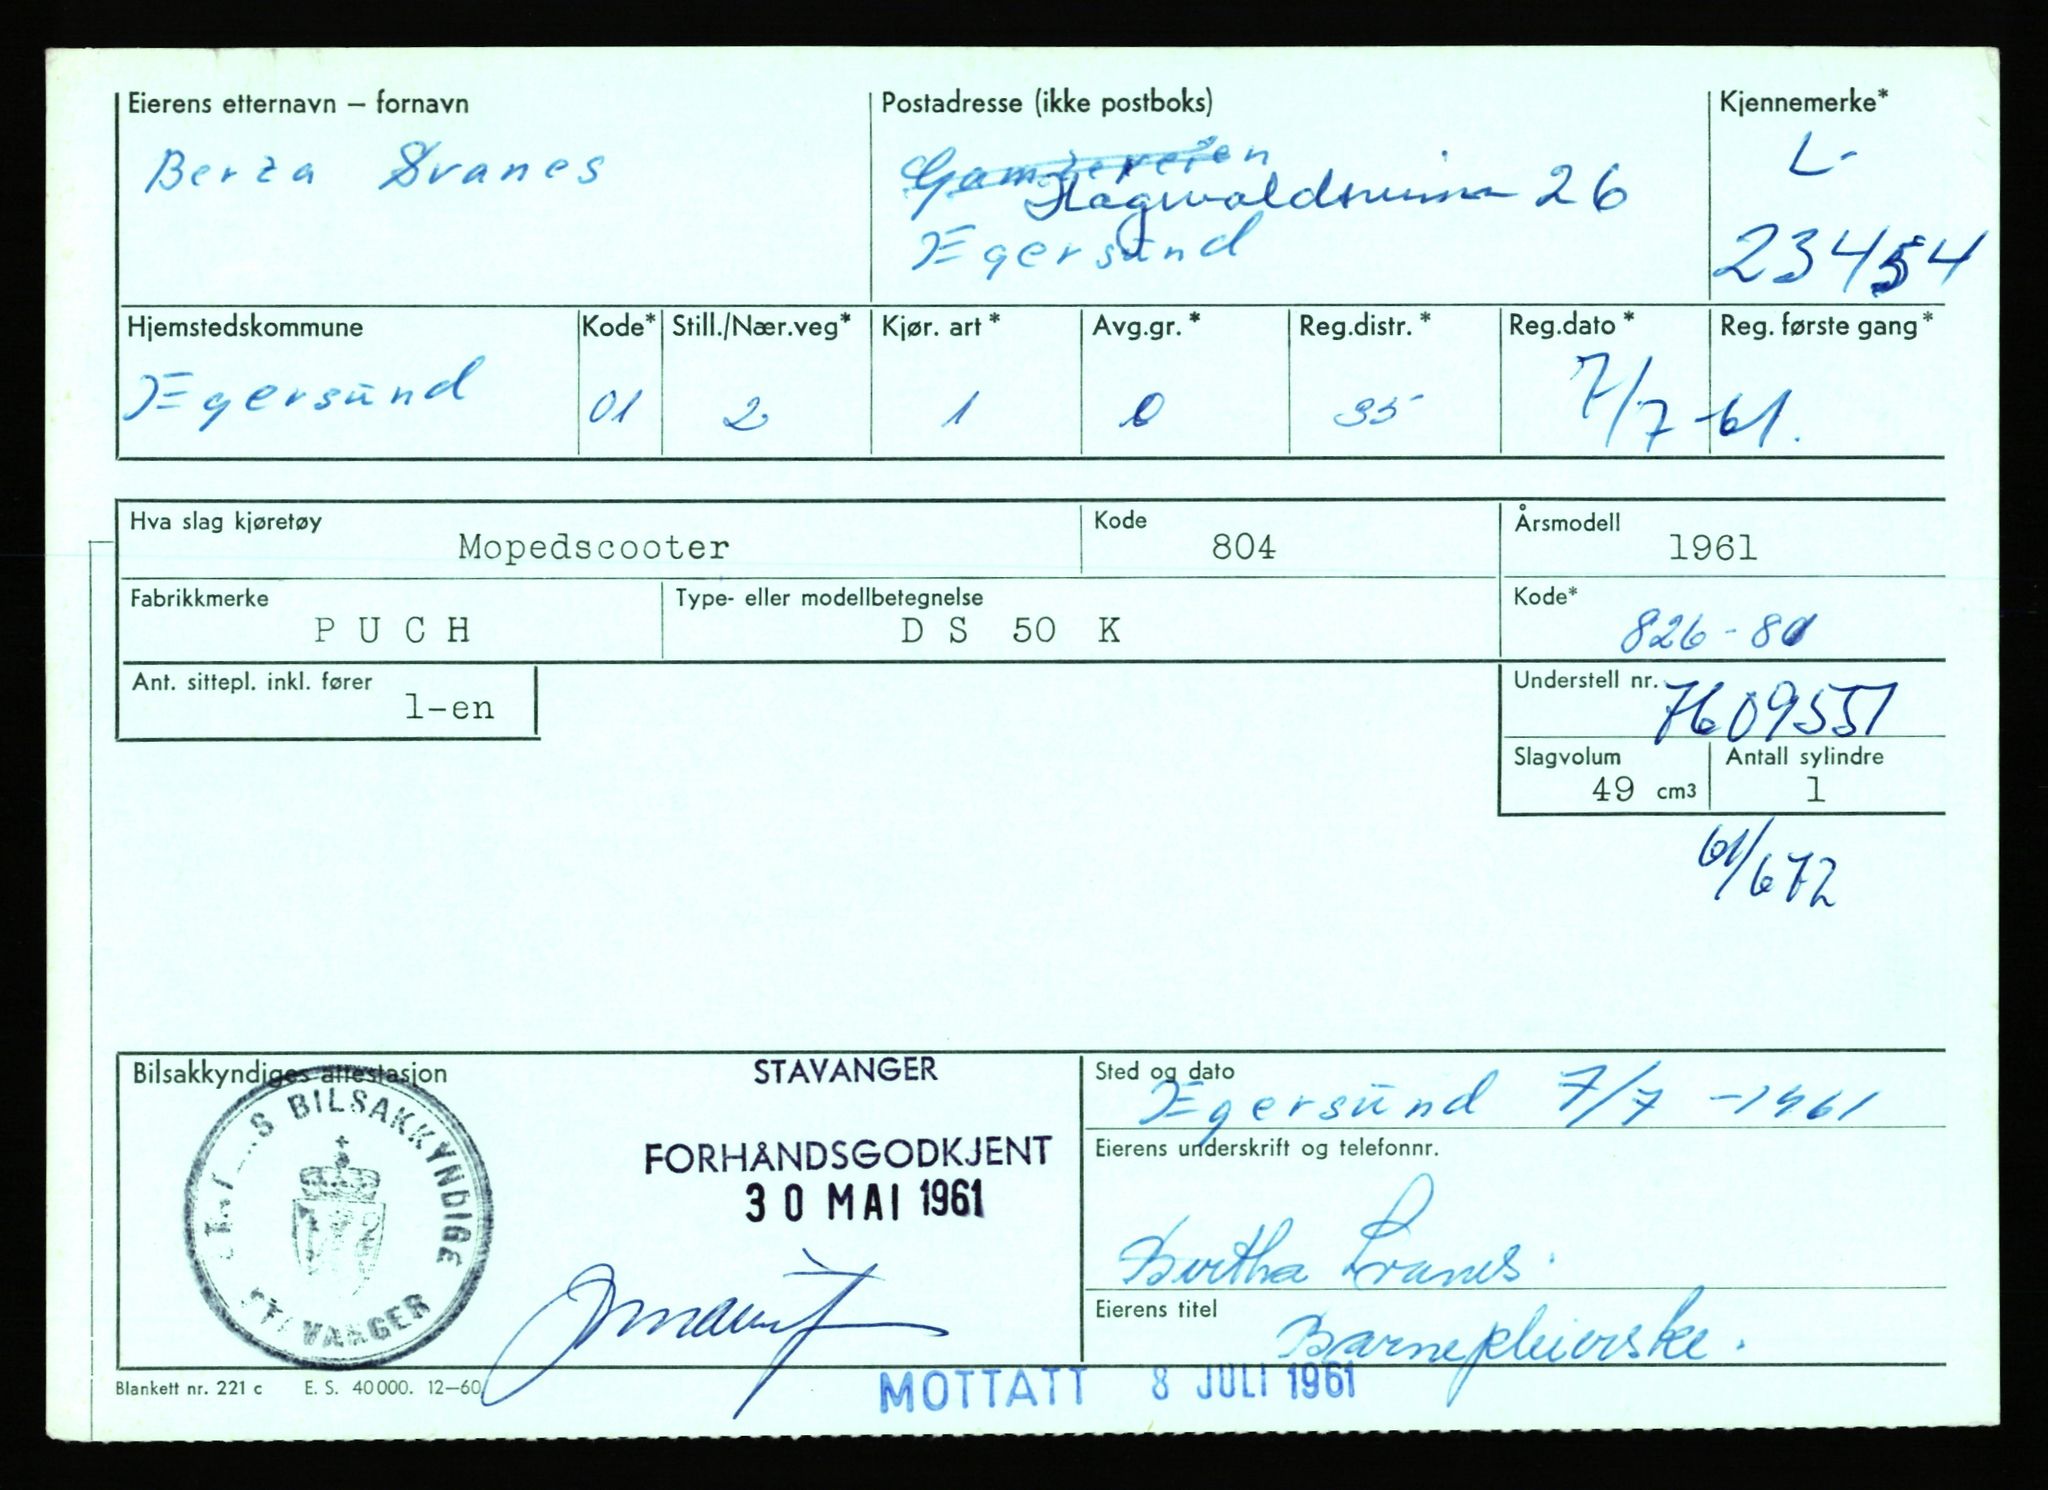 Eierens etternavn – fornavn
Postadresse (ikke postboks)
Kjennemerke*
Berta Svanes
Gamleveien
26
Egersund
L-
23454
Hjemstedskommune
Kode*
Still./Nær.veg*
Kjør. art *
Avg.gr. *
Reg.distr. *
Reg.dato *
Reg. første gang *
Egersund
01
2
1
0
35
7/7-61.
Hva slag kjøretøy
Mopedscooter
Kode
804
Årsmodell
1961
Fabrikkmerke
PUCH
Type- eller modellbetegnelse
DS 50 K
Kode*
826-80
Ant. sittepl. inkl. fører
1-en
Understell nr.
7609551
Slagvolum
49 cm3
Antall sylindre
1
61/672
Bilsakkyndiges attestasjon
S BILSAKKYNDIGE
STAVANGER
STAVANGER
FORHÅNDSGODKJENT
30 MAI 1961
Sted og dato
Egersund 7/7-1961
Eierens underskrift og telefonnr.
Bertha Svanes.
Eierens titel
Barnepleierske.
Blankett nr. 221 c E. S. 40000. 12–60
MOTTATT 8 JULI 1961